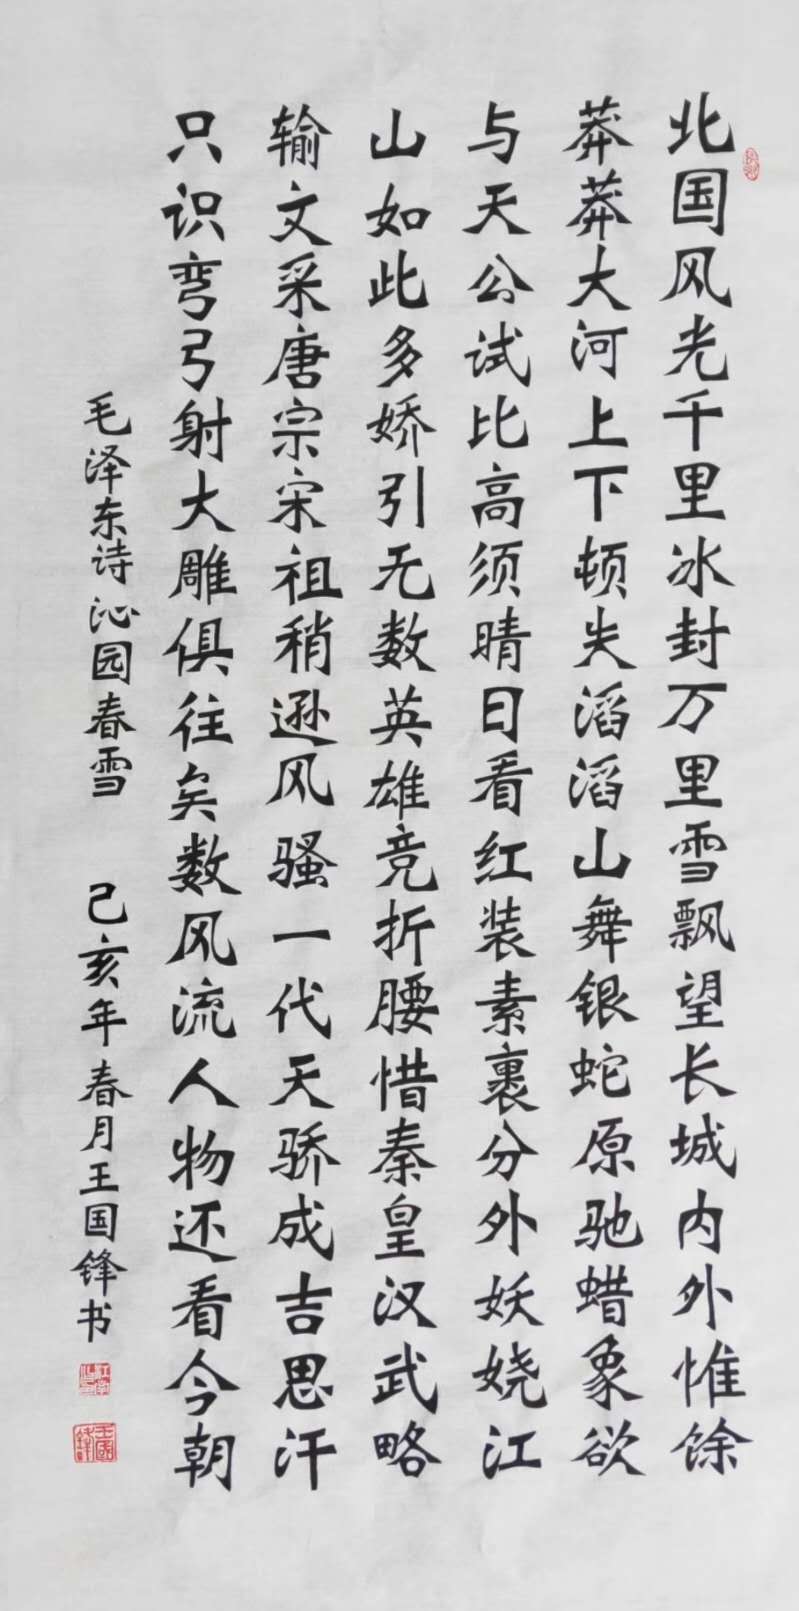 北国风光千里冰封万里雪飘望长城内外惟馀
莽莽大河上下顿失滔滔山舞银蛇原驰蜡象欲
与天公试比高须晴日看红装素裹分外妖娆江
山如此多娇引无数英雄竞折腰惜秦皇汉武略
输文采唐宗宋祖稍逊风骚一代天骄成吉思汗
只识弯弓射大雕俱往矣数风流人物还看今朝
毛泽东诗沁园春雪 己亥年春月王国锋书